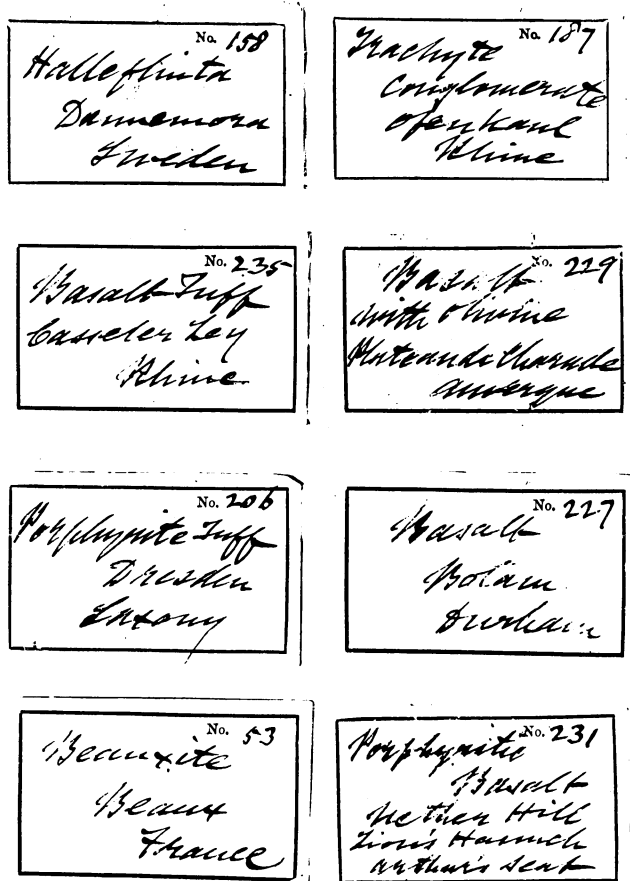 No. 158
Halleflinta
Dannemora
Sweden
No. 187
Trachyte
Conglomerate
Ofenkaul
Rhine
No. 235
Basalt Tuff
Casseler Ley
Rhine
No. 229
Basalt
with Olivine
Plateau de Charade
Auvergne
No. 206
Porphyrite Tuff
Dresden
Saxony
No. 227
Basalt
Bolam
Durham
No. 53
Beauxite
Beaux
France
No. 231
Porphyritic
Basalt
Nether Hill
Lion's Haunch
Arthur's Seat